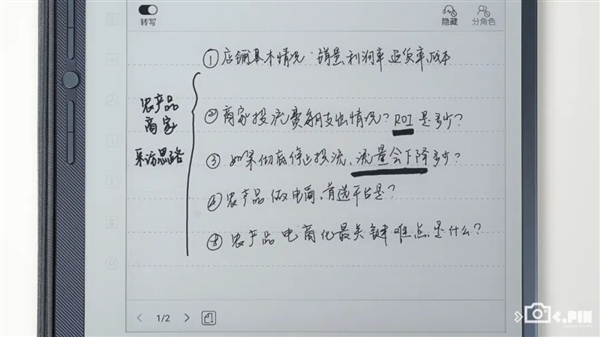 转写
隐藏
分角色
农产品
商家
采访思路
①店铺基本情况:销量 利润率 退货率 成本
②商家投流费用支出情况? ROI是多少?
③如果彻底停止投流,流量会下降多少?
④农产品做电商,首选平台是?
⑤农产品电商化最关键难点是什么?
1/2
C.PIN